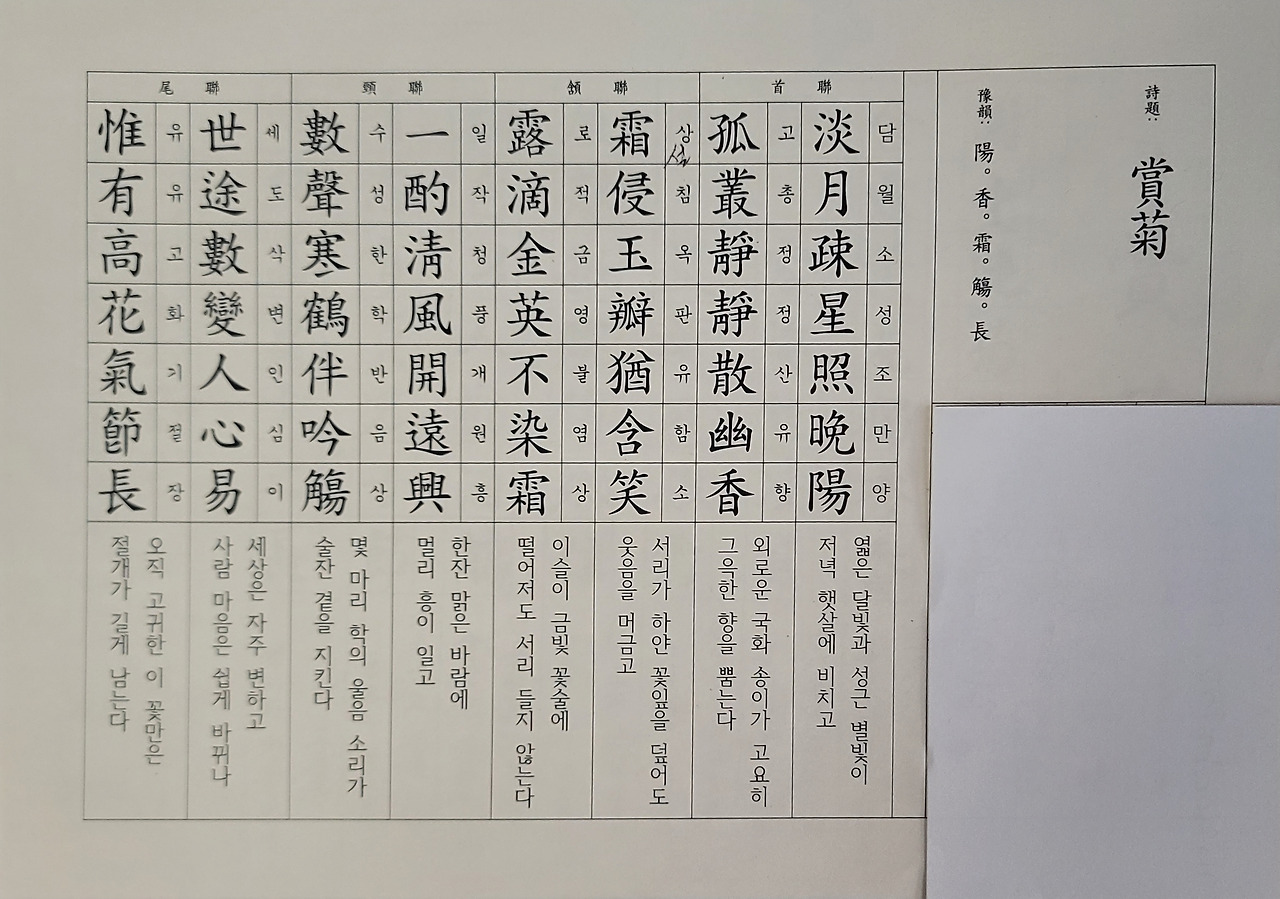 詩題: 賞菊
豫韻: 陽。香。霜。觴。長
首 聯
淡月疎星照晩陽
담월소성조만양
엷은 달빛과 성근 별빛이
저녁 햇살에 비치고
孤叢靜靜散幽香
고총정정산유향
외로운 국화 송이가 고요히
그윽한 향을 뿜는다
頷 聯
霜侵玉瓣猶含笑
상침옥판유함소
서리가 하얀 꽃잎을 덮어도
웃음을 머금고
露滴金英不染霜
로적금영불염상
이슬이 금빛 꽃술에
떨어저도 서리 들지 않는다
頸 聯
一酌淸風開遠興
일작청풍개원흥
한잔 맑은 바람에
멀리 흥이 일고
數聲寒鶴伴吟觴
수성한학반음상
몇 마리 학의 울음 소리가
술잔 곁을 지킨다
尾 聯
世途數變人心易
세도삭변인심이
세상은 자주 변하고
사람 마음은 쉽게 바뀌나
惟有高花氣節長
유유고화기절장
오직 고귀한 이 꽃만은
절개가 길게 남는다